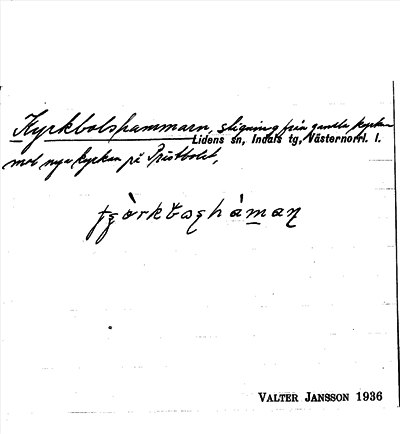 Kyrkbolshammarn, stigning från gamla kyrkan
Lidens sn, Indals tg, Västernorrl. l.
mot nya kyrkan på Prästbolet,
VALTER JANSSON 1936